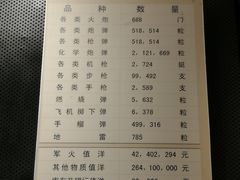 品 种 数 量
各 类 火 炮 668 门
各 类 炮 弹 518,514 粒
各 类 枪 弹 518,514 粒
化 学 炮 弹 2,121,669 粒
各 类 机 枪 2,724 挺
各 类 步 枪 99,492 支
各 类 手 枪 2,589 支
燃 烧 弹 5,632 粒
飞 机 掷 下 弹 6,378 粒
手 榴 弹 499,316 粒
地 雷 785 粒
军 火 值 洋 42,402,294 元
其他物质值洋 264,100,000 元